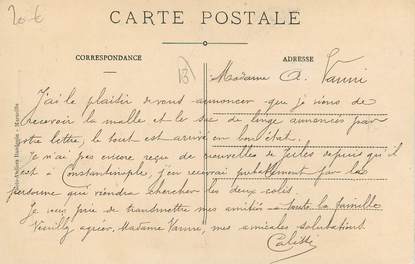 20 €
CARTE POSTALE
CORRESPONDANCE
ADRESSE
Madame A. Vanni
J'ai le plaisir de vous annoncer que je viens de
recevoir la malle et le sac de linge annoncés par
votre lettre, le tout est arrivé en bon état.
Je n'ai pas encore reçu de nouvelles de Jules depuis qu'il
est à Constantinople, j'en recevrai probablement par la
personne qui viendra chercher les deux colis.
Je vous prie de transmettre mes amitiés à toute la famille
Veuillez agréer, Madame Vanni, mes amicales salutations.
Marseille